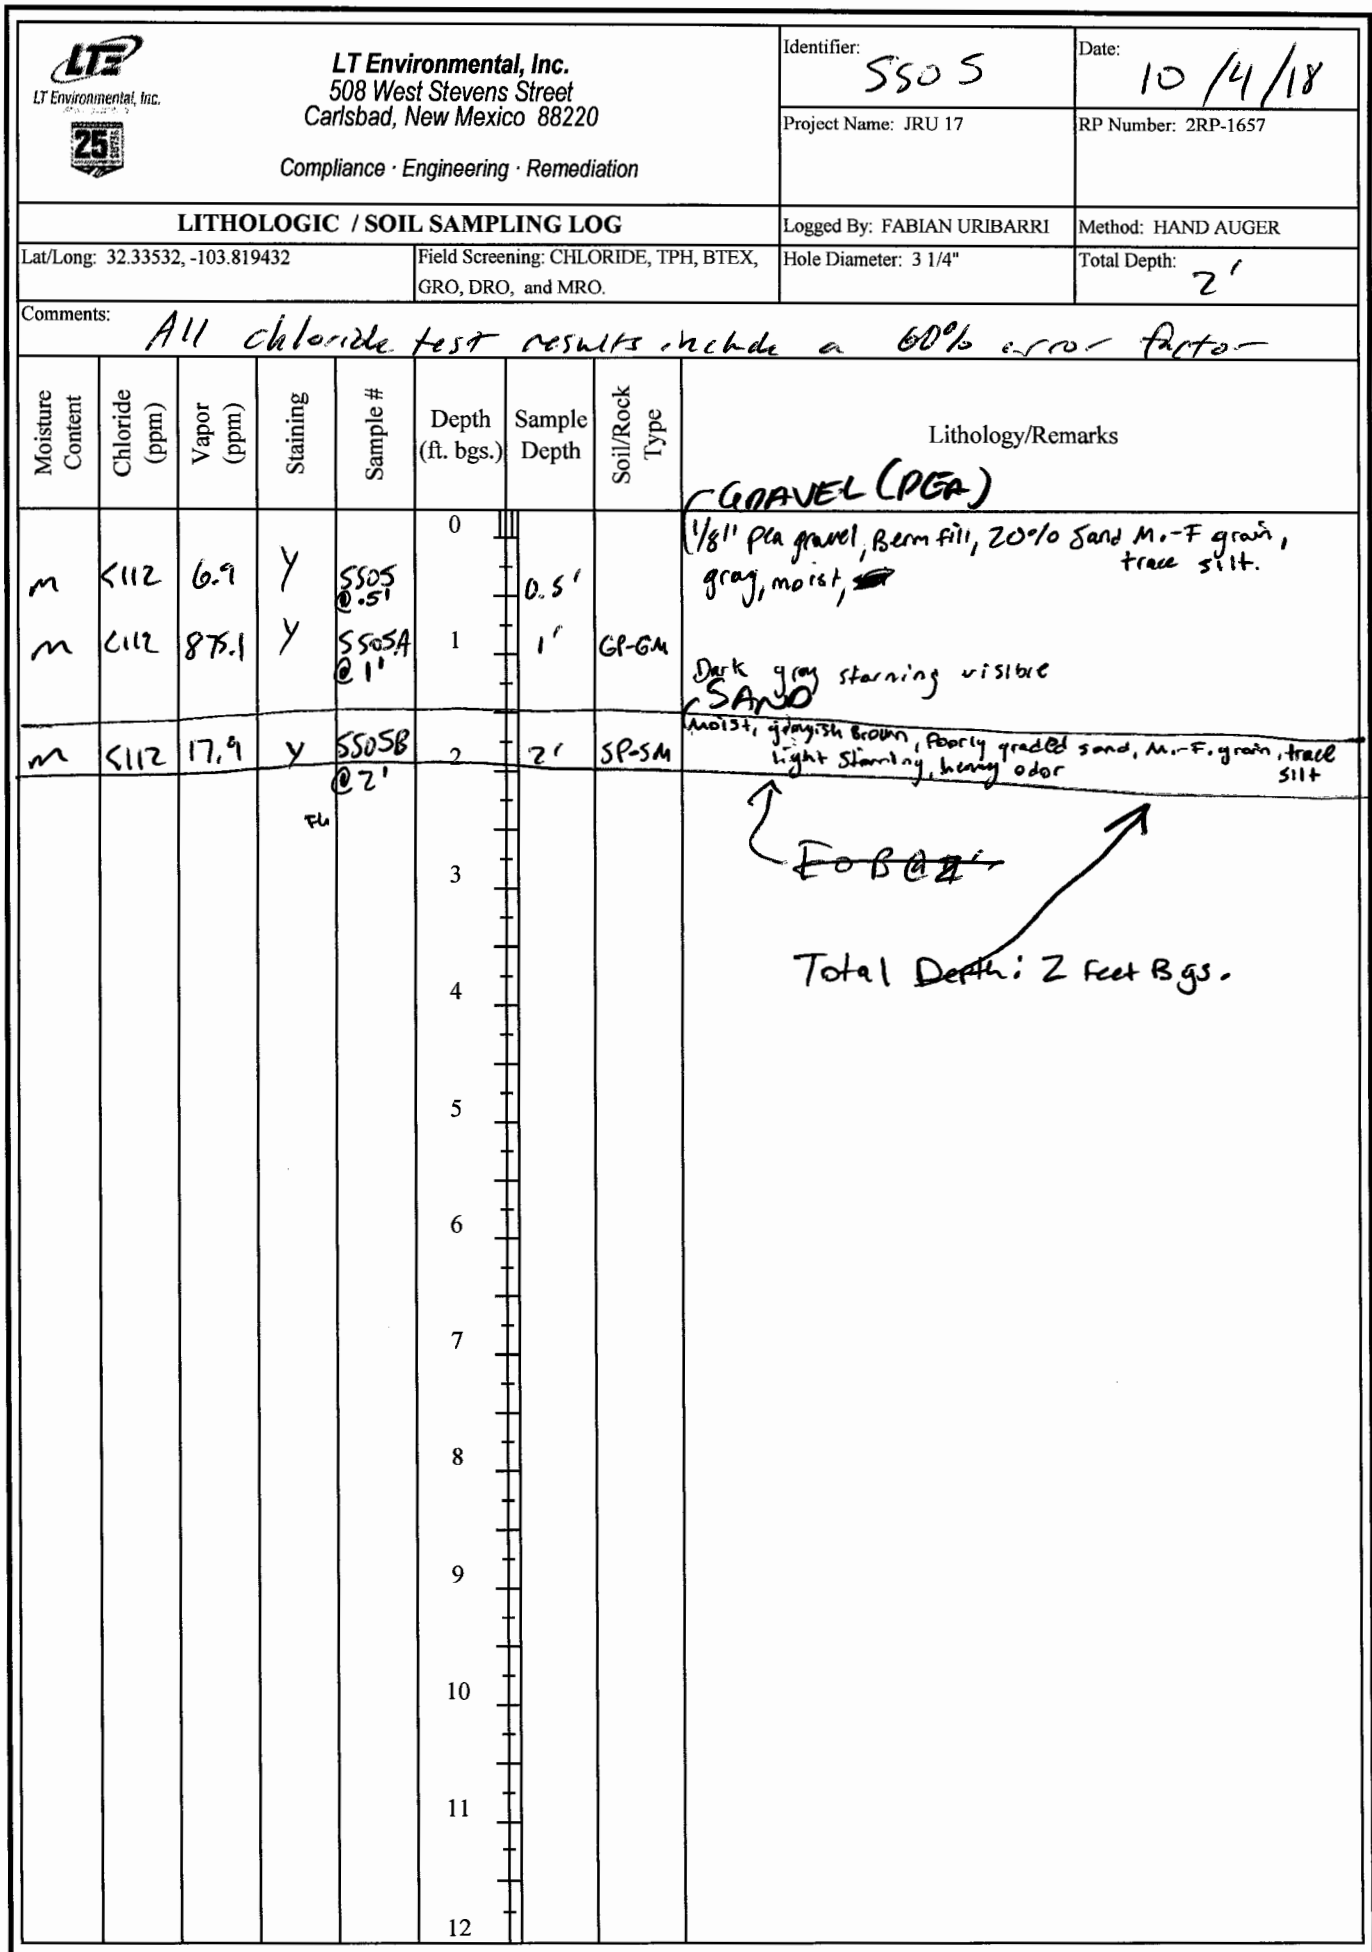 LTE
LT Environmental, Inc.
25 YEARS
LT Environmental, Inc.
508 West Stevens Street
Carlsbad, New Mexico 88220
Compliance · Engineering · Remediation
Identifier: SS05
Date: 10/4/18
Project Name: JRU 17
RP Number: 2RP-1657
LITHOLOGIC / SOIL SAMPLING LOG
Logged By: FABIAN URIBARRI
Method: HAND AUGER
Lat/Long: 32.33532, -103.819432
Field Screening: CHLORIDE, TPH, BTEX,
GRO, DRO, and MRO.
Hole Diameter: 3 1/4"
Total Depth: 2'
Comments: All chloride test results include a 60% error factor
Moisture Content
Chloride (ppm)
Vapor (ppm)
Staining
Sample #
Depth (ft. bgs.)
Sample Depth
Soil/Rock Type
Lithology/Remarks
GRAVEL (PEA)
0
1/8" pea gravel, Berm fill, 20% Sand M.-F grain,
trace silt.
gray, moist,
m <112 6.9 Y SS05 @ .5' 0.5'
m <112 875.1 Y SS05A @ 1' 1 1' GP-GM
Dark gray staining visible
SAND
Moist, grayish Brown, Poorly graded sand, M.-F. grain, trace
silt
m <112 17.9 Y SS05B @ 2' 2 2' SP-SM Light Staining, heavy odor
EOB @ 2'
3
Total Depth: 2 feet Bgs.
4
5
6
7
8
9
10
11
12